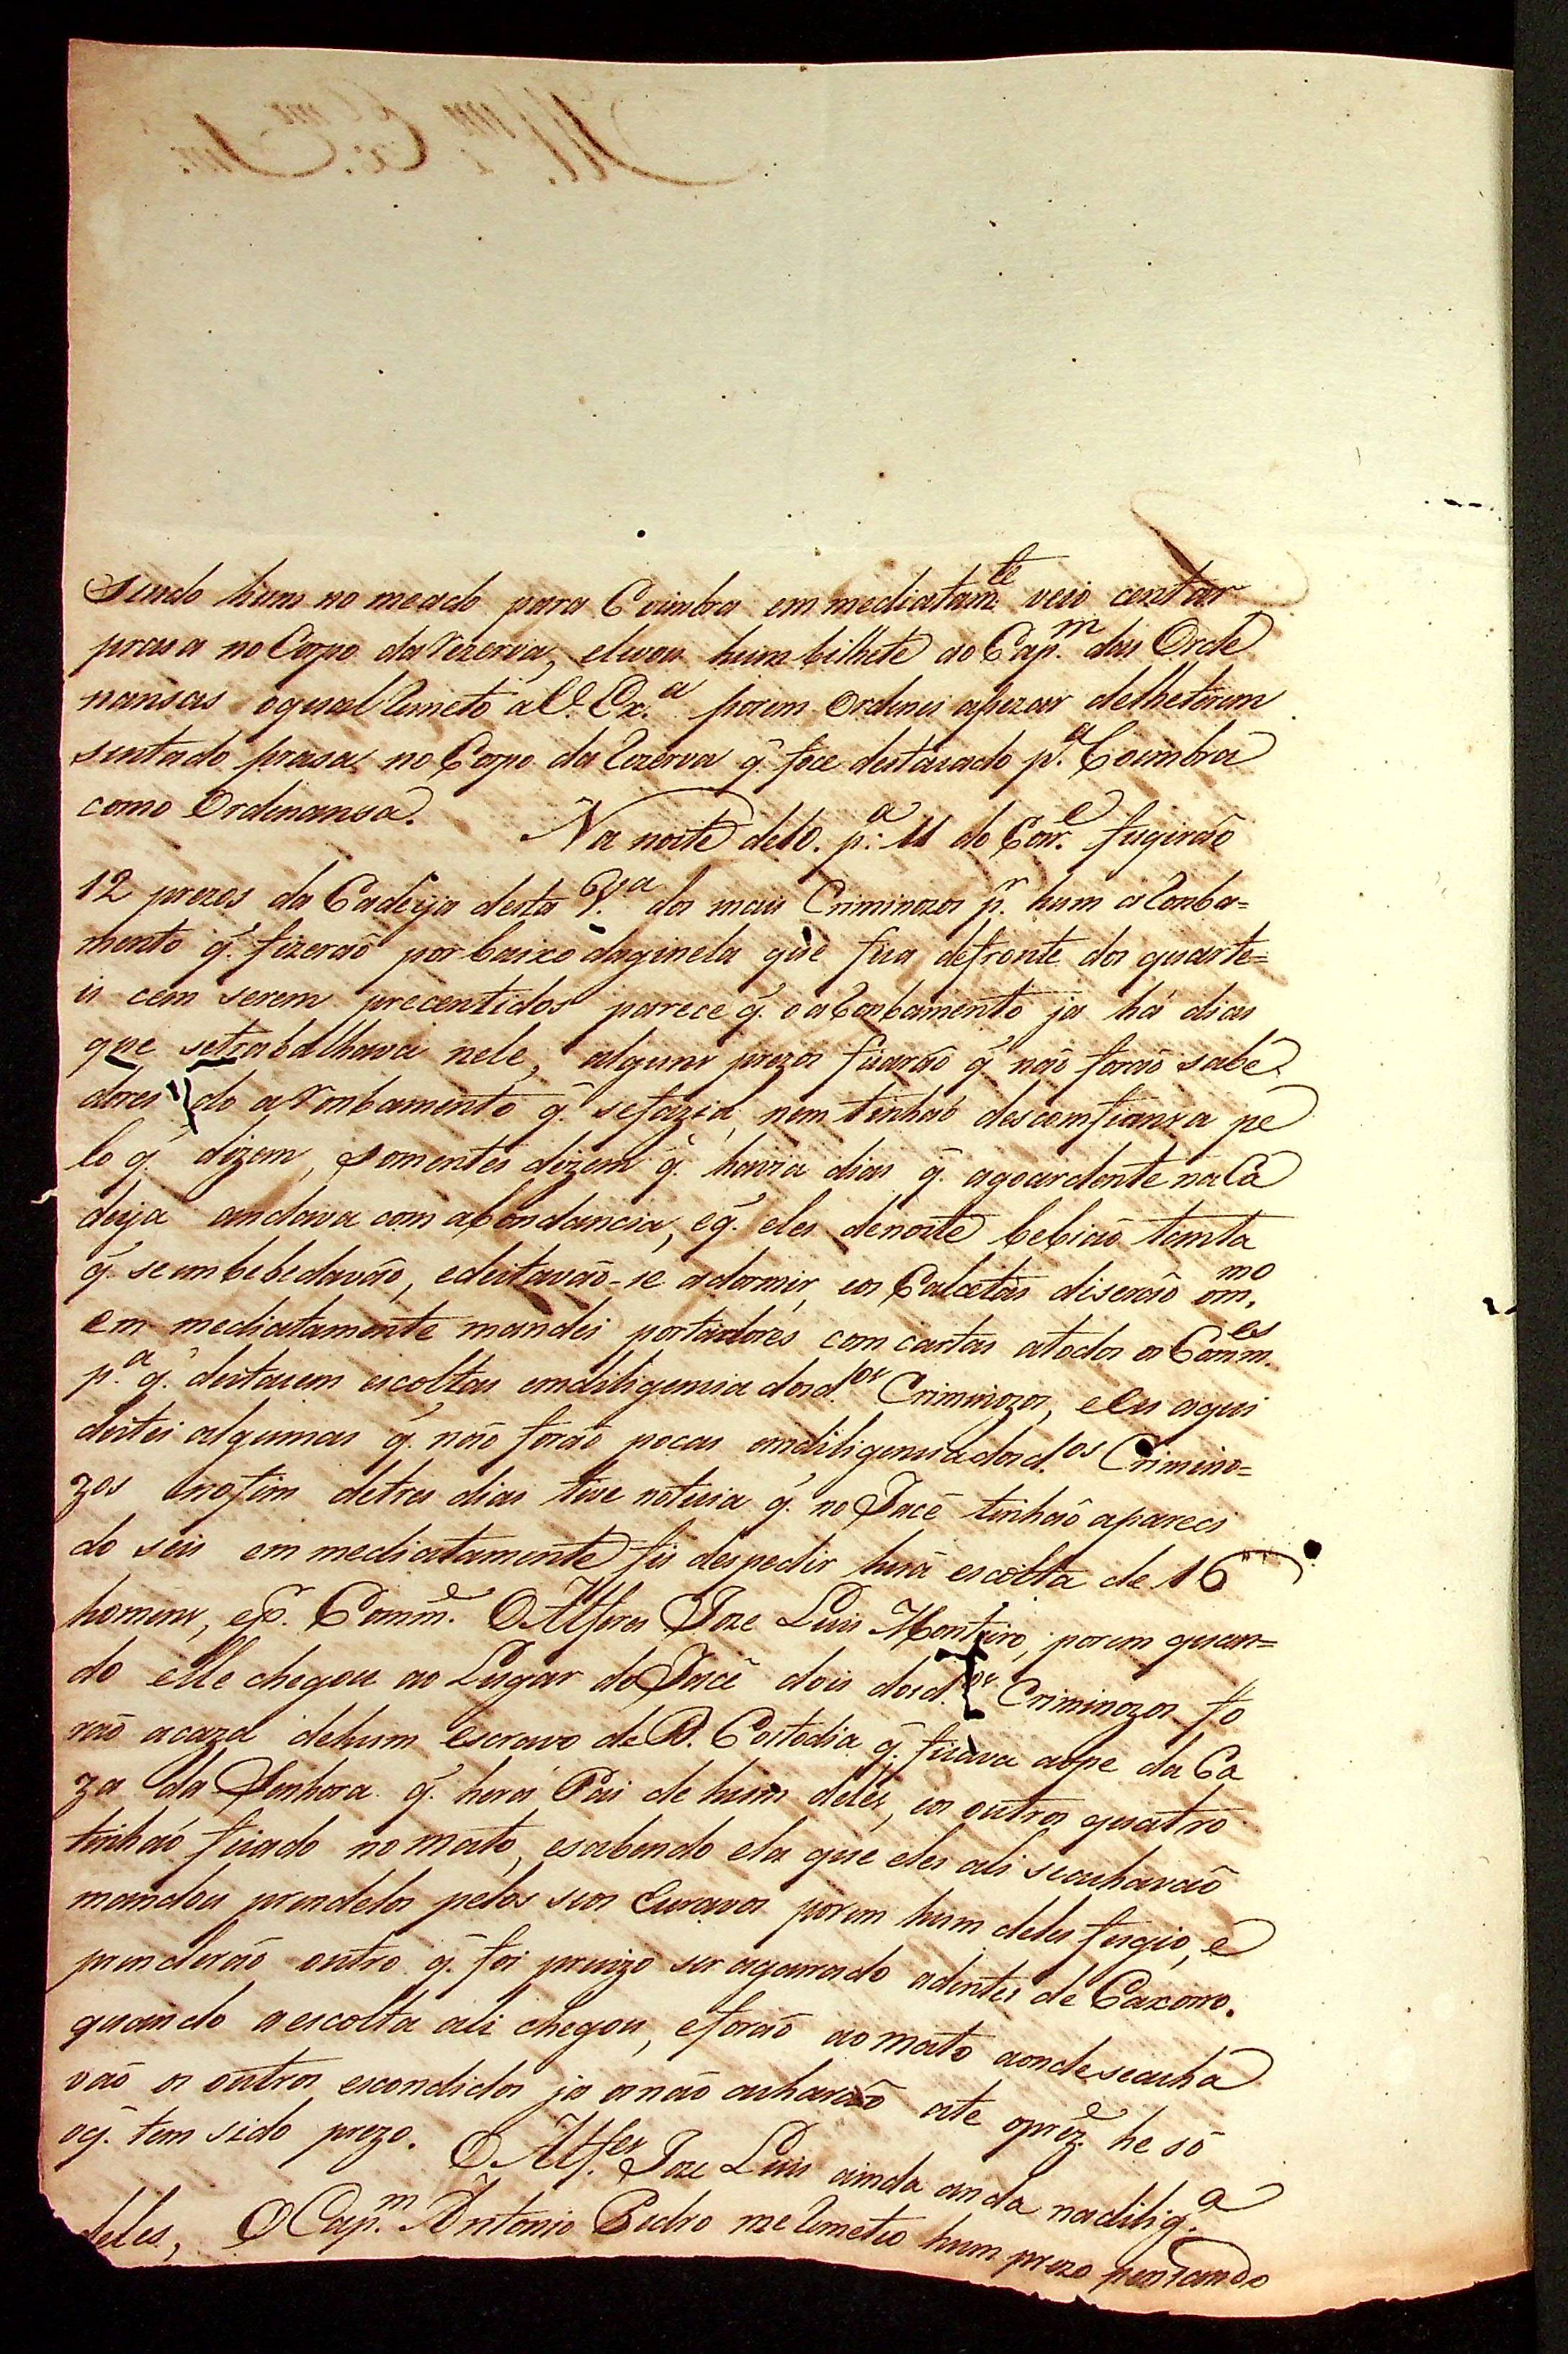 Sendo hum no meado para Coimbra em mediatam.te veio centar
prasa no Corpo da Rezerva, elevou hum bilhete ao Cap.m das Orde
nansas oqual Remeto a V. Ex.a porem Ordenei apezar delheterem
sentado prasa no Corpo da Rezerva q̃. foce destacado p.a Coimbra
como Ordenansa. Na noite de 10. p.a 11 do Cor.e fugirão
12 prezos da Cadeya desta V.a dos mais Criminozos p.r hum aRomba=
mento q̃. fizerão por baixo daginela que fica defronte dos quarte=
is cem serem precentidos parece q̃. o aRombamento ja há dias
que setrabalhava nele, alguns prezos ficarão q̃ não forão sabe
dores do aRombamento q̃. sefazia, nem tinhão descomfianza pe
lo q̃ dizem, somentes dizem q̃. havia dias q̃. agoardente na Ca
deya andava com abondancia, eq̃. eles denoite bebião tanta
q̃. se embebedavão, edeitavão-se adormir, eos Calcetas diserão om.mo
em mediatamente mandei portadores com cartas atodos os Comm.es
p.a q̃. deitasem escoltas emdiligencia dosd.os Criminozos, eles aqui
deitei algumas q̃. não forão pocas emdiligencia dosd.os Crimino=
zos enofim detres dias tive noticia q̃. no Jacé tinhão apareci
do seis em mediatamente fis despedir huã escolta de 16
homens, ep.r Comm.e O Alferes Joze Luis Monteiro, porem quan=
do elle chegou ao Lugar do Jacé dois dosd.os Criminozos fo
rão acaza dehum escravo de D. Costodia q̃. ficava aope da Ca
za da Senhora q̃. hera Pai de hum deles, eos outros quatro
tinhão ficado no mato, esabendo ela que eles ali seachavão
mandou prendelos pelos seos Escravos porem hum deles fugio, e
prenderão outro q̃. foi precizo ser agarrado adentes de Caxorro.
quando a escolta ali chegou, eforão ao mato aondeseacha
vão os outros escondidos ja os não acharão ate oprez.e he só
oq̃. tem sido prezo. O Alf.es Joze Luis ainda anda nadilig.a
deles, O Cap.m Antonio Pedro me Remeteo hum prezo pensando